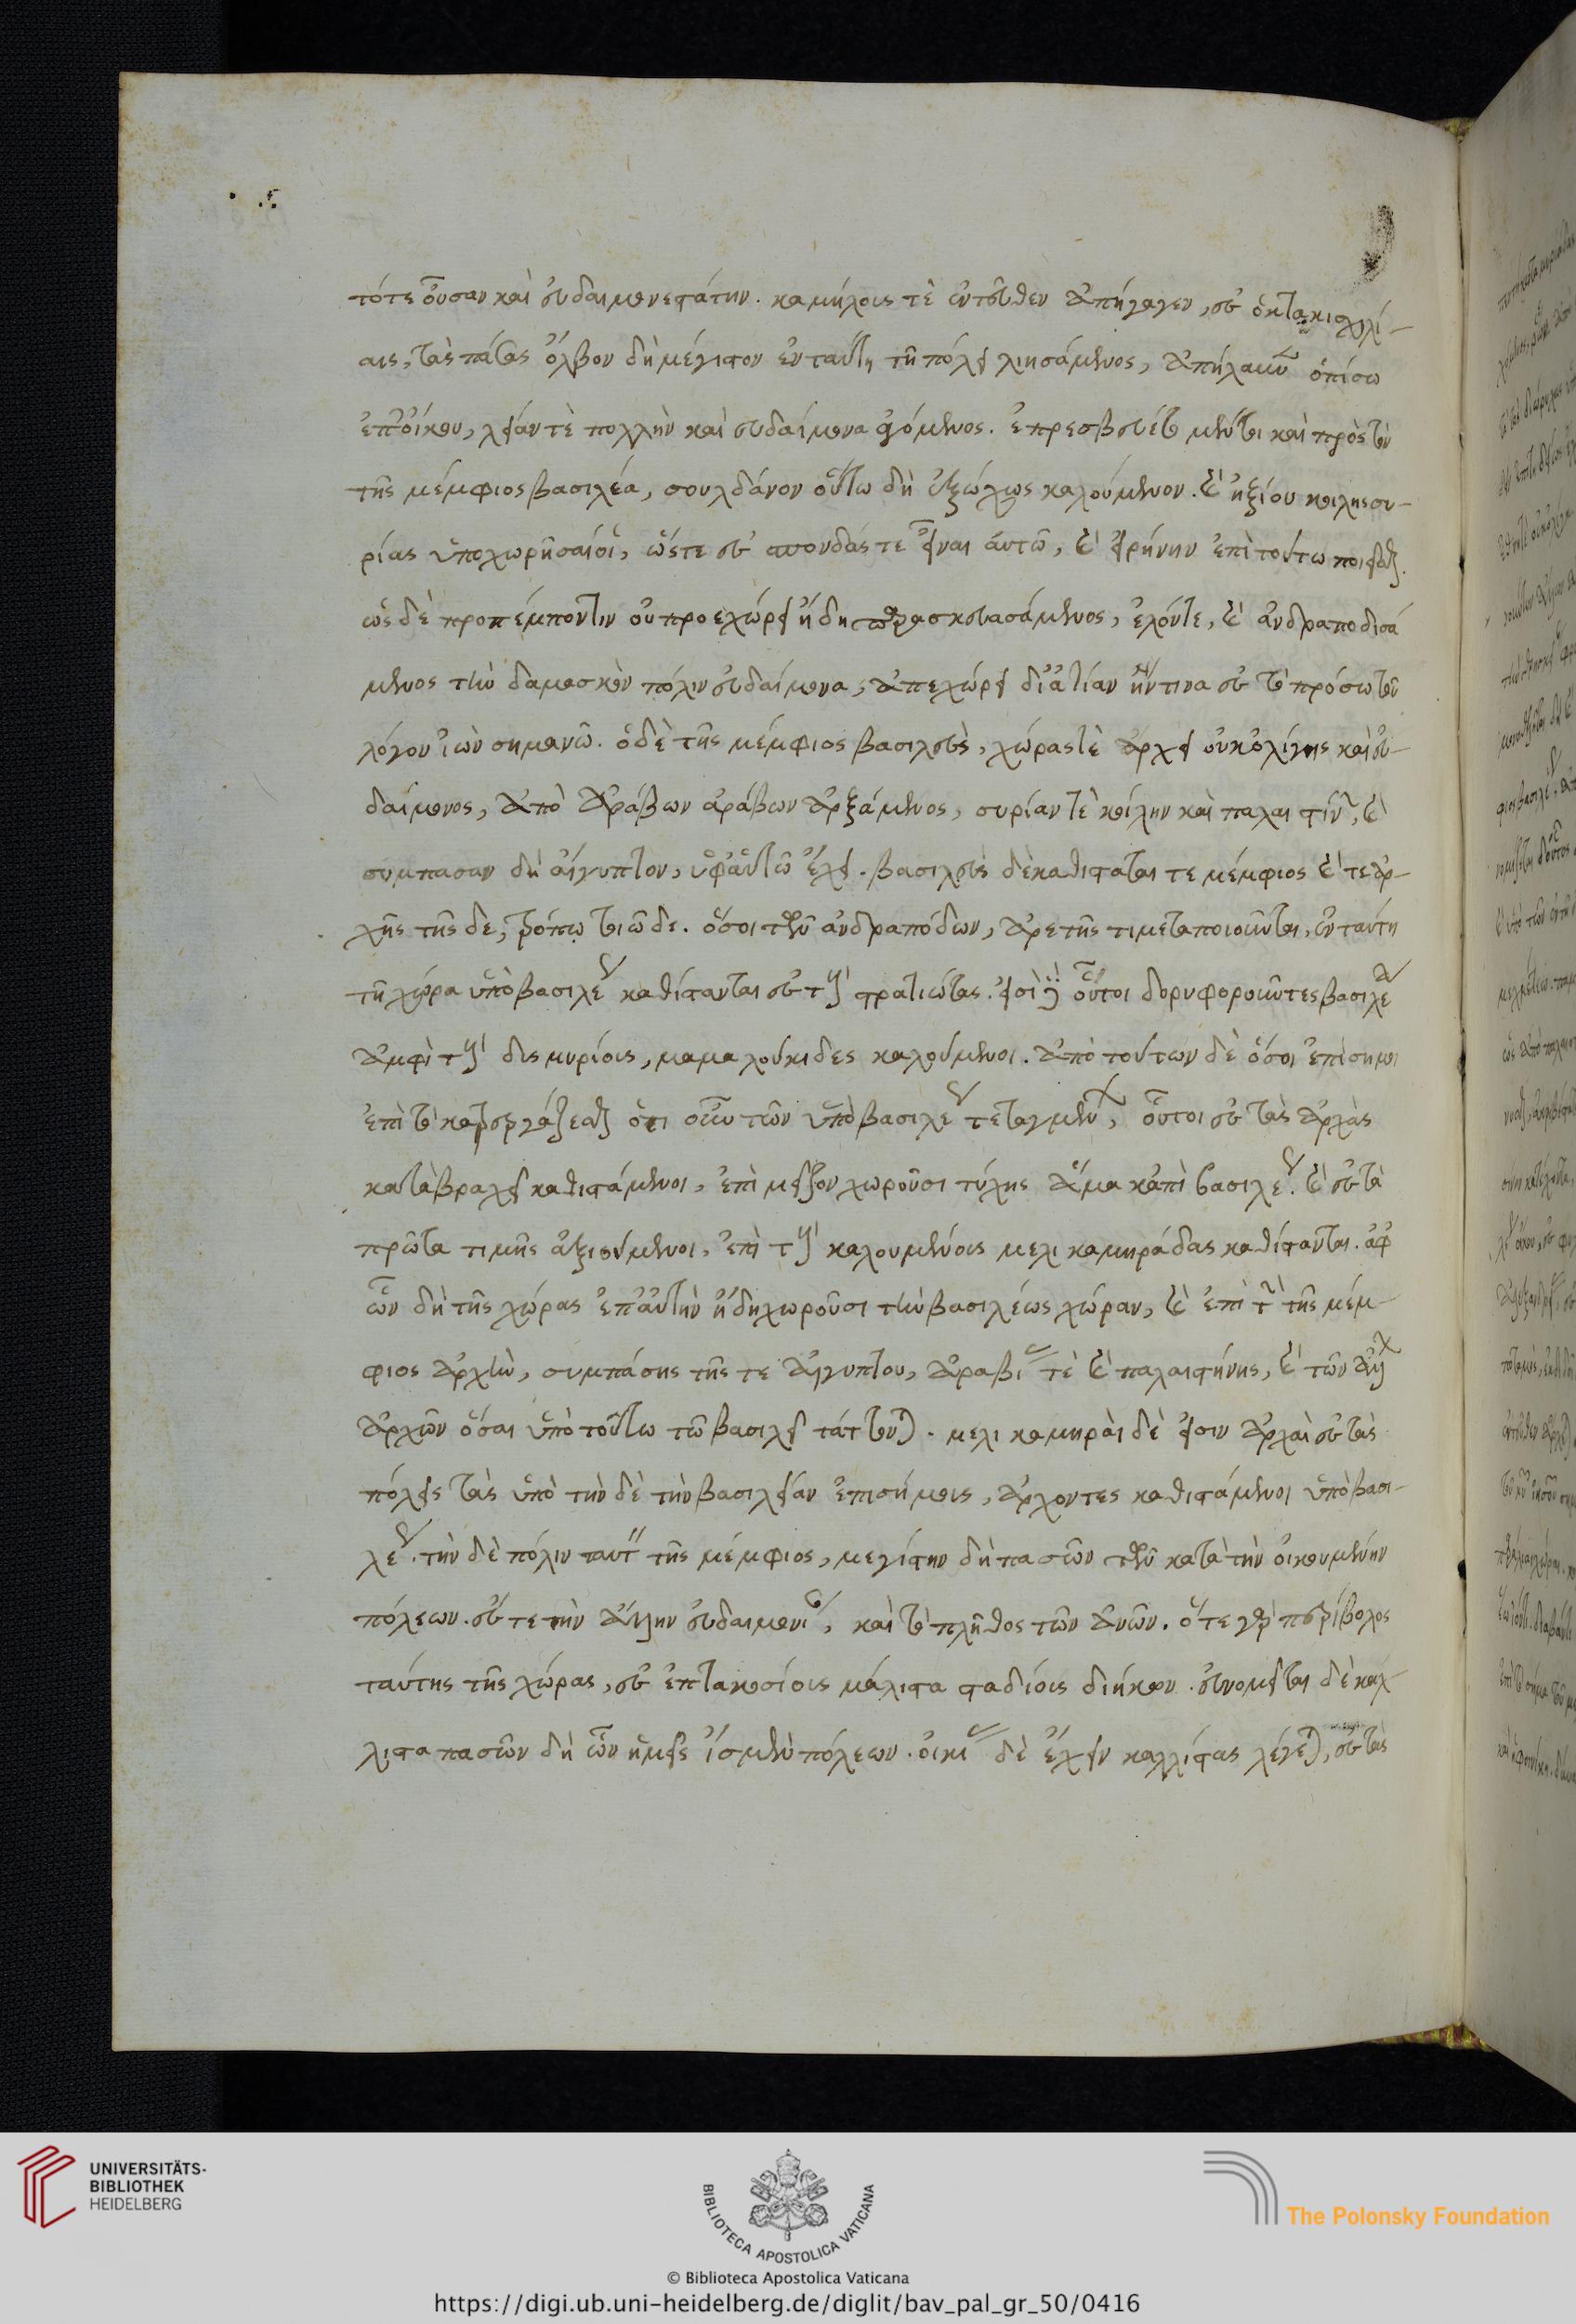 τότε οὖσαν καὶ εὐδαιμονεστάτην. καμήλους τὲ ἐντεῦθεν ἀπήγαγεν, ἐς ὀκτακισχιλί-
ας, τὰς πάσας ὄλβον δὴ μέγιστον ἐν ταύτῃ τῇ πόλει ληισάμενος, ἀπήλαυνεν ὀπίσω
ἐπ' οἴκου, λείαν τὲ πολλὴν καὶ εὐδαίμονα ἀγόμενος. ἐπρεσβεύετο μέντοι καὶ πρὸς τὸν
τῆς μέμφιος βασιλέα, σουλδάνον οὕτω δὴ καλούμενον. καὶ ἠξίου κοίλης συ-
ρίας ὑποχωρῆσαί οἱ, ὥστε ἐς σπονδάς τε ἰέναι αὐτῶ, καὶ εἰρήνην ἐπὶ τούτω ποιεῖσθαι.
ὡς δὲ προπέμποντιν οὐ προεχώρει ἤδη παρασκευασάμενος, ἑλόντε, καὶ ἀνδραποδισά
μενος τὴν δαμασκὸν πόλιν εὐδαίμονα, ἀπεχώρει δι' αἰτίαν ἥντινα ἐς τὸ πρόσω τοῦ
λόγου ἰὼν σημανῶ. ὁ δὲ τῆς μέμφιος βασιλεὺς, χώρας τὲ ἄρχει οὐκ ὀλίγης καὶ εὐ-
δαίμονος, ἀπὸ ἀράβων ἀράβων ἀρξάμενος, συρίαν τὲ κοίλην καὶ παλαιστίνην, καὶ
σύμπασαν δὴ αἴγυπτον, ὑφ' αὑτῶ ἔχει. βασιλεὺς δὲ καθίσταται τε μέμφιος καὶ τε ἀρ-
χῆς τῆς δε, τρόπῳ τοιῶδε. ὅσοι τῶν ἀνδραπόδων, ἀρετῆς τι μεταποιοῦνται, ἐν ταύτη
τῇ χώρα ὑπὸ βασιλέως καθίστανται ἐς τοὺς στρατιώτας. εἰσὶ οὗτοι δορυφοροῦντες βασιλέα
ἀμφὶ τοὺς δισμυρίους, μαμαλούκιδες καλούμενοι. ἀπὸ τούτων δὲ ὅσοι ἐπίσημοι
ἐπὶ τὸ κατεργάζεσθαι ὅτι οὖν τῶν ὑπὸ βασιλέως τεταγμένων, οὗτοι ἐς τὰς ἀρχὰς
κατὰ βραχὺ καθιστάμενοι, ἐπὶ μεῖζον χωροῦσι τύχης ἅμα κἀπὶ βασιλέως. καὶ ἐς τὰ
πρῶτα τιμῆς ἀξιούμενοι, ἐπὶ τοὺς καλουμένους μελικαμηράδας καθίστανται. ἀφ'
ὧν δὴ τῆς χώρας ἐπ' αὐτὴν ἤδη χωροῦσι τὴν βασιλέως χώραν, καὶ ἐπὶ τὴν τῆς μέμ-
φιος ἀρχὴν, συμπάσης τῆς τε αἰγύπτου, ἀραβίας τὲ καὶ παλαιστίνης, καὶ τῶν ἄλλων
ἀρχῶν ὅσαι ὑπὸ τούτω τῶ βασιλεῖ τάττονται. μελικαμηρὰι δὲ εἰσιν ἀρχαὶ ἐς τὰς
πόλεις τὰς ὑπὸ τὴν δὲ τὴν βασιλείαν ἐπισήμους, ἄρχοντες καθιστάμενοι ὑπὸ βασι-
λέως. τὴν δὲ πόλιν ταύτην τῆς μέμφιος, μεγίστην δὴ πασῶν τῶν κατὰ τὴν οἰκουμένην
πόλεων. ἔς τε τὴν ἄλλην εὐδαιμονίαν, καὶ τὸ πλῆθος τῶν ἀνῶν. ὅ τε γὰρ περίβολος
ταύτης τῆς χώρας, ἐς ἑπτακοσίους μάλιστα σταδίους διήκων. εὐνομεῖται δὲ κάλ-
λιστα πασῶν δὴ ὧν ἡμεῖς ἴσμεν πόλεων. οἰκίας δὲ ἔχειν καλλίστας λέγεται, ἐς τὰς
UNIVERSITÄTS-
BIBLIOTHEK
HEIDELBERG
BIBLIOTECA APOSTOLICA VATICANA
The Polonsky Foundation
© Biblioteca Apostolica Vaticana
https://digi.ub.uni-heidelberg.de/diglit/bav_pal_gr_50/0416